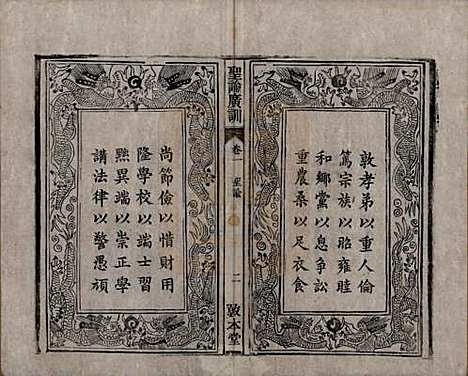 敦孝弟以重人倫
篤宗族以昭雍睦
和鄉黨以息爭訟
重農桑以足衣食
聖諭廣訓
卷一
聖諭
二
尚節儉以惜財用
隆學校以端士習
黜異端以崇正學
講法律以警愚頑